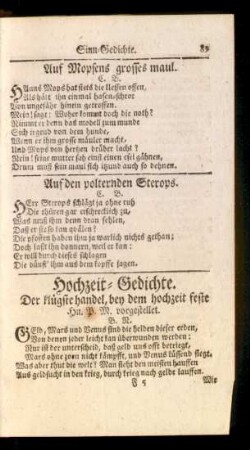 Sinn-Gedichte. 89
Auf Mopsens grosses maul.
C. B.
HAnns Mops hat stets die lessen offen,
Als hätt ihn einmal hasen-schrot
Von ungefähr hinein getroffen.
Mein! sagt: Woher kommt doch die noth?
Nimmt er denn das modell zum munde
Sich irgend von dem hunde,
Wenn er ihm grosse mäuler macht,
Und Mops von hertzen drüber lacht?
Nein! seine mutter sah einst einen esel gähnen,
Drum muß sein maul sich ihund auch so dehnen.
Auf den polternden Sterops.
C. B.
HErr Sterops schlägt ja ohne ruh
Die thüren gar erschrecklich zu,
Was muß ihm denn dran fehlen,
Daß er sie so kan qvälen?
Die pfosten haben ihm ja warlich nichts gethan;
Doch laßt ihn donnern, weil er kan:
Er will durch dieses schlagen
Die dünst' ihm aus dem kopffe jagen.
Hochzeit-Gedichte.
Der klügste handel, bey dem hochzeit feste
Hn. P. M. vorgestellet.
B. N.
GEld, Mars und Venus sind die helden dieser erden,
Von denen jeder leicht kan überwunden werden:
Nur ist der unterscheid, daß geld uns offt betriegt,
Mars ohne zorn nicht kämpfft, und Venus küssend siegt.
Was aber thut die welt? Man sieht den meisten hauffen
Aus geldsucht in den krieg, durch krieg nach gelde lauffen.
F 5 Wir